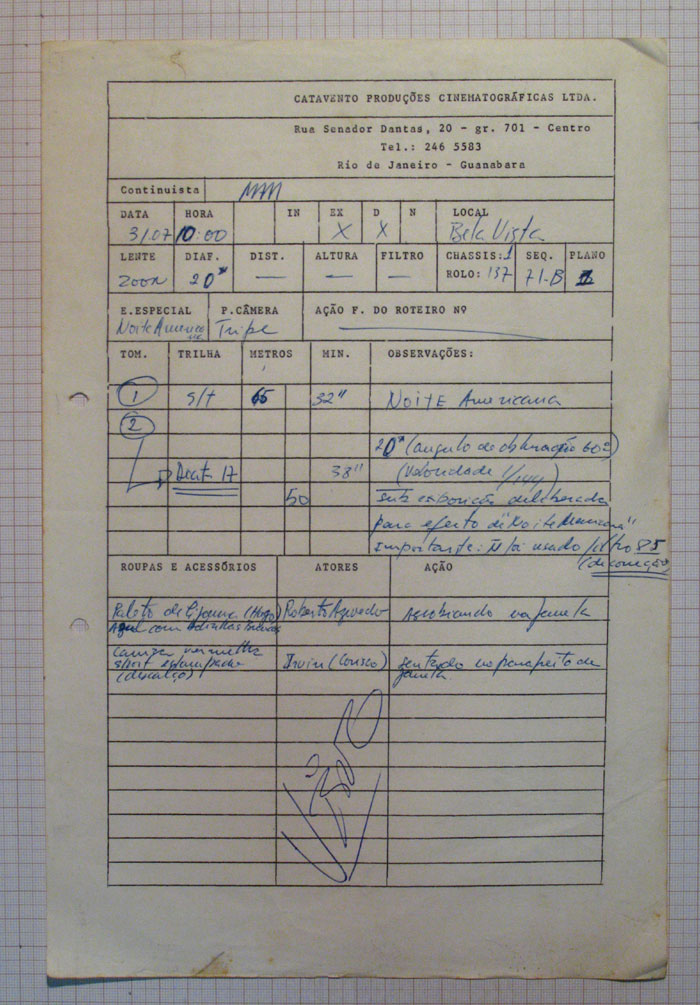 CATAVENTO PRODUÇÕES CINEMATOGRÁFICAS LTDA.
Rua Senador Dantas, 20 - gr. 701 - Centro
Tel.: 246 5583
Rio de Janeiro - Guanabara
Continuista
DATA HORA IN EX D N LOCAL
31/07 10:00 X X Bela Vista
LENTE DIAF. DIST. ALTURA FILTRO CHASSIS:1 SEQ. PLANO
ZOOM 20" — — — ROLO: 137 71-B
E.ESPECIAL P.CÂMERA AÇÃO F. DO ROTEIRO Nº
Noite Americana Tripé
TOM. TRILHA METROS MIN. OBSERVAÇÕES:
1 s/t 65 32" NOITE Americana
2
20" (angulo de obturação 60º)
17 38" (Velocidade 1/144)
50 sub exposição deliberada
para efeito de "Noite Americana"
Importante: Ñ foi usado filtro 85
(de correção)
ROUPAS E ACESSÓRIOS ATORES AÇÃO
Paletó de Pijama (Hugo) Roberto Azevedo Assobiando na janela
Azul com bolinhas brancas
camisa vermelha
short estampado Irvin (Corisco) sentado no parapeito da
(descalço) janela